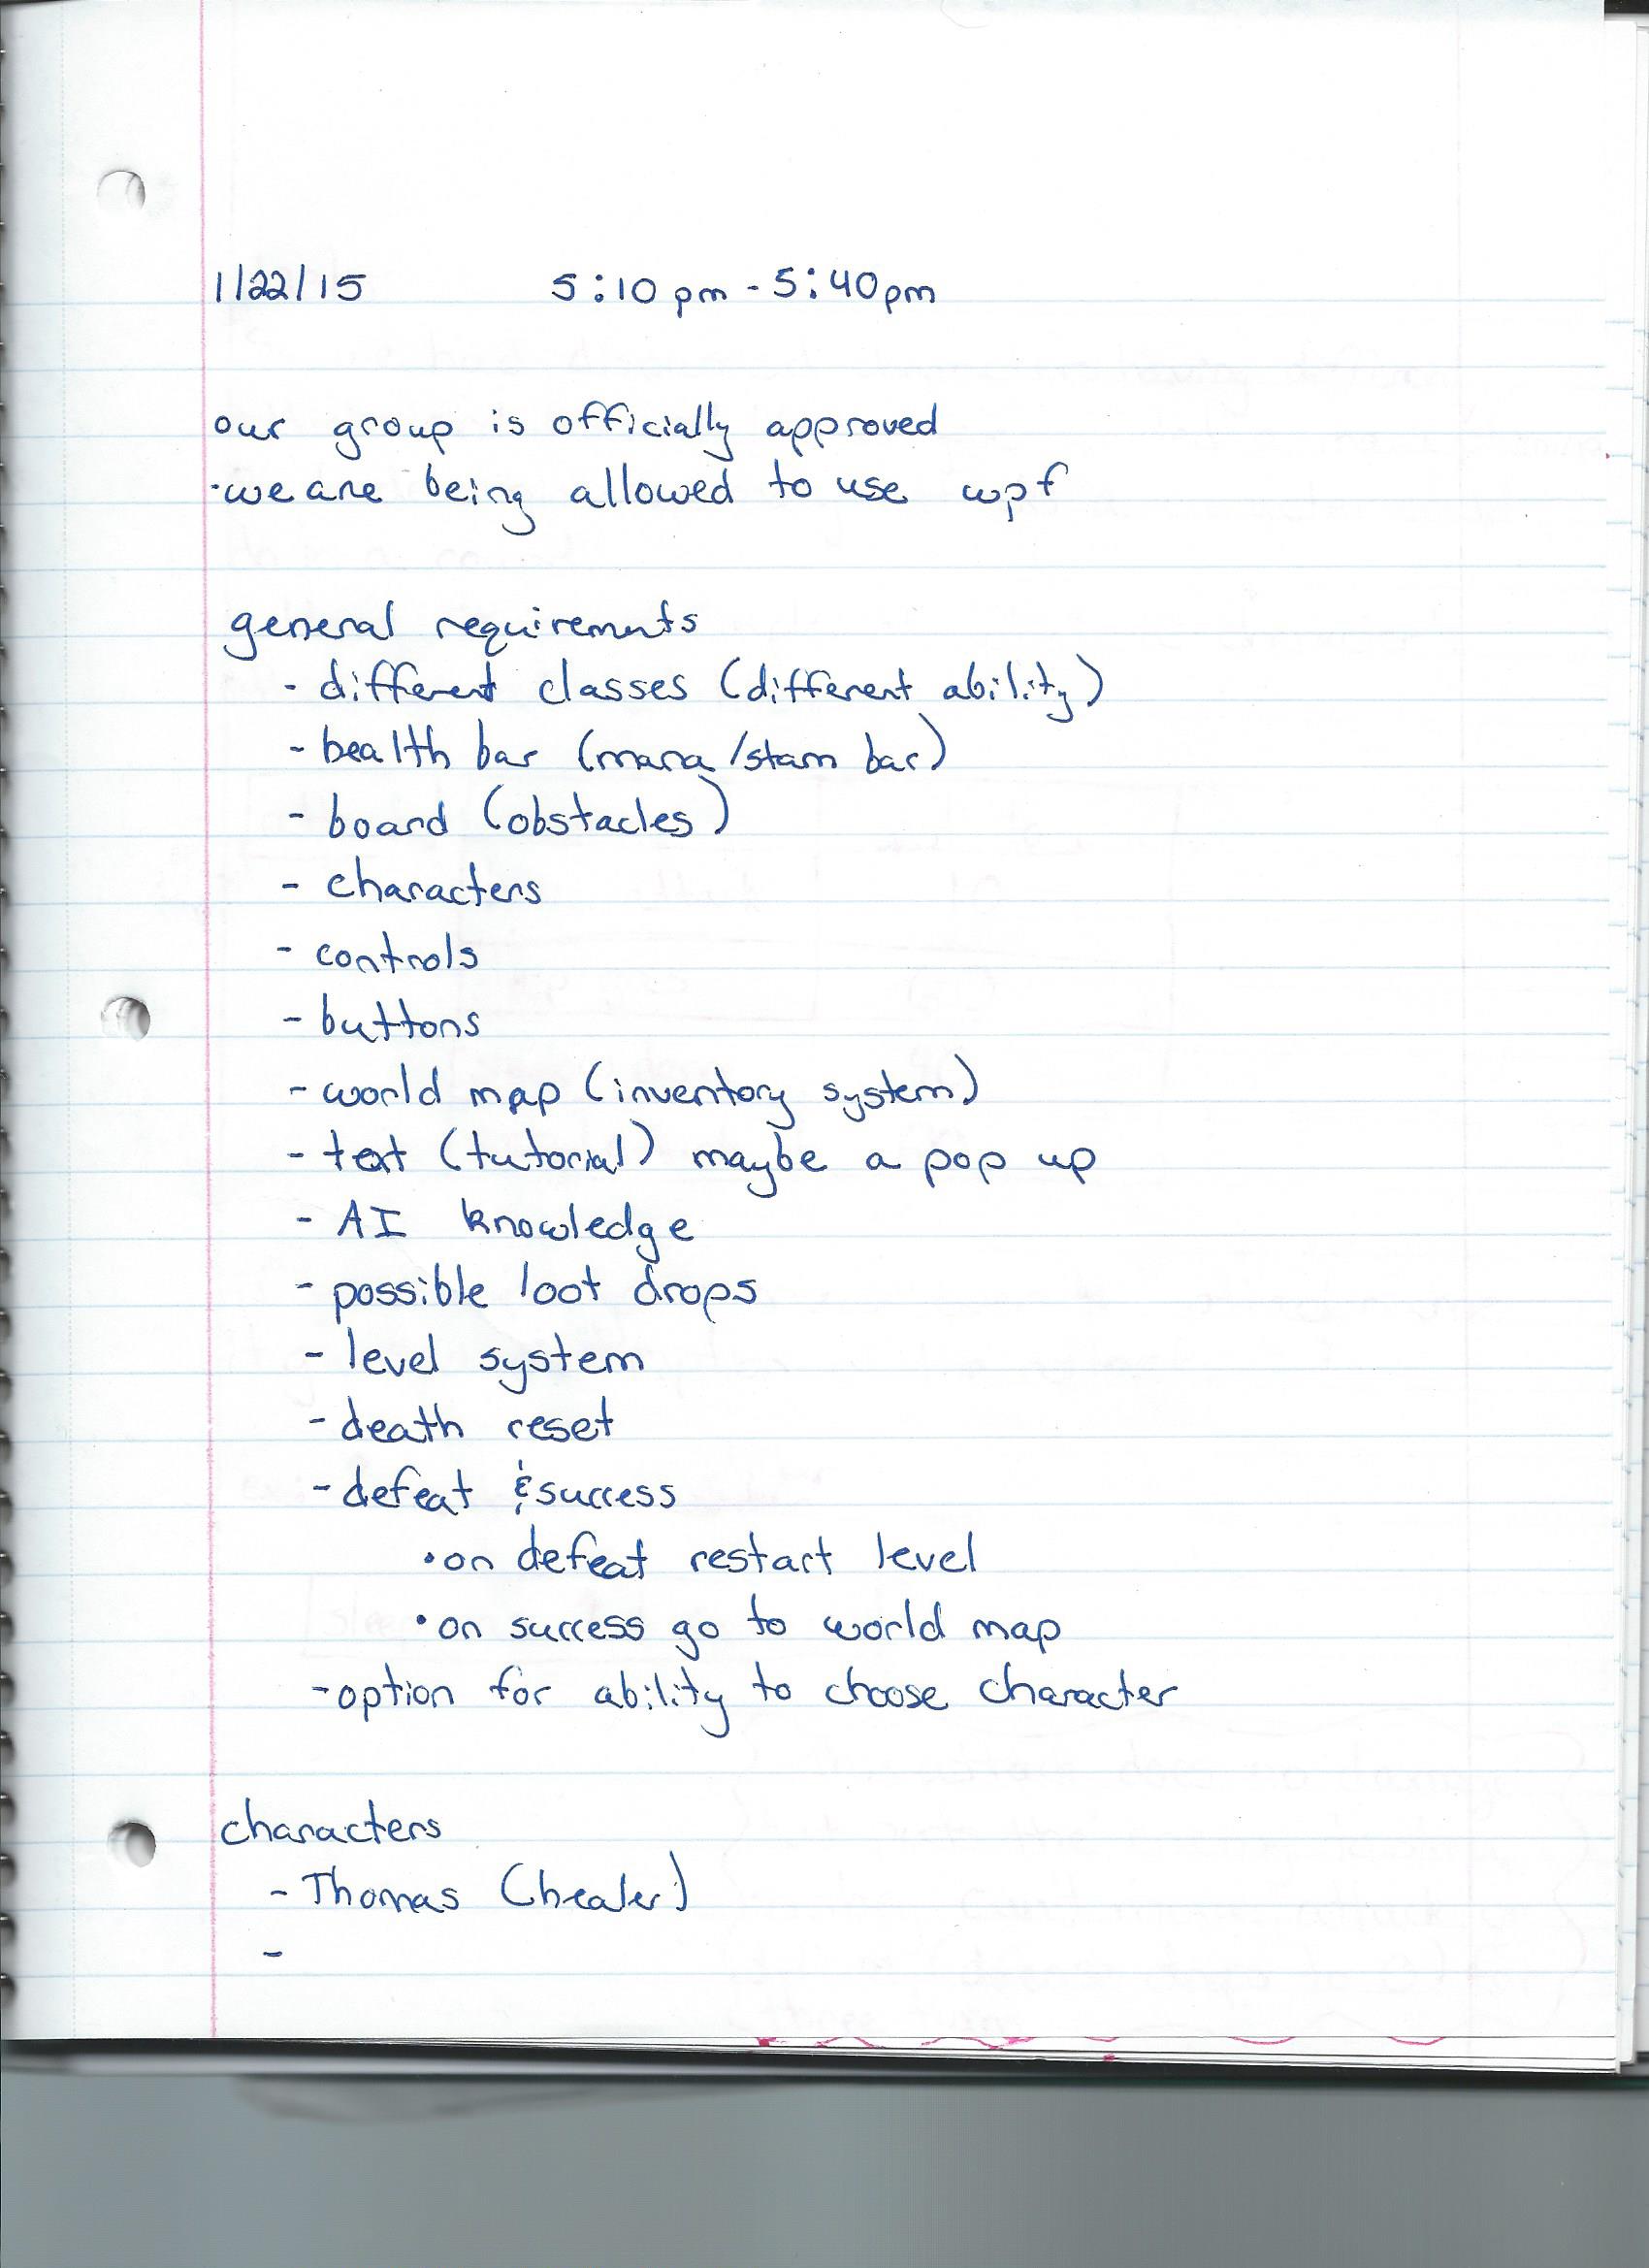 1/22/15 5:10 pm - 5:40pm
our group is officially approved
·we are being allowed to use wpf
general requirements
- different classes (different ability)
- health bar (mana/stam bar)
- board (obstacles)
- characters
- controls
- buttons
- world map (inventory system)
- text (tutorial) maybe a pop up
- AI knowledge
- possible loot drops
- level system
- death reset
- defeat & success
• on defeat restart level
• on success go to world map
- option for ability to choose character
characters
- Thomas (healer)
-